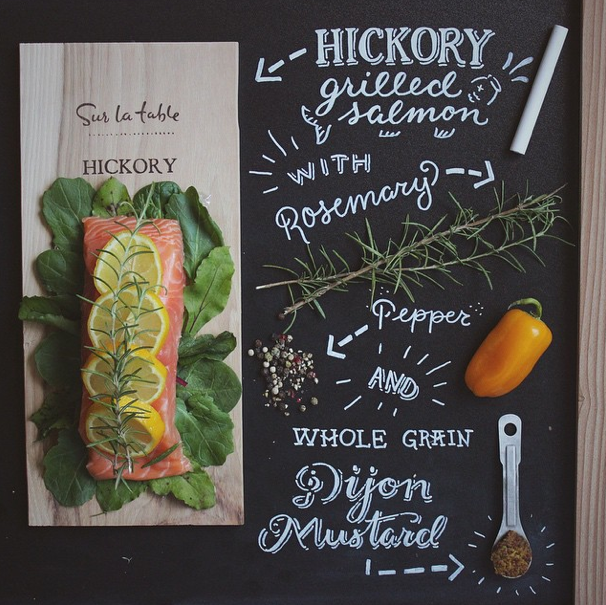 Sur la table
HICKORY
HICKORY
grilled
salmon
WITH
Rosemary
Pepper
AND
WHOLE GRAIN
Dijon
Mustard